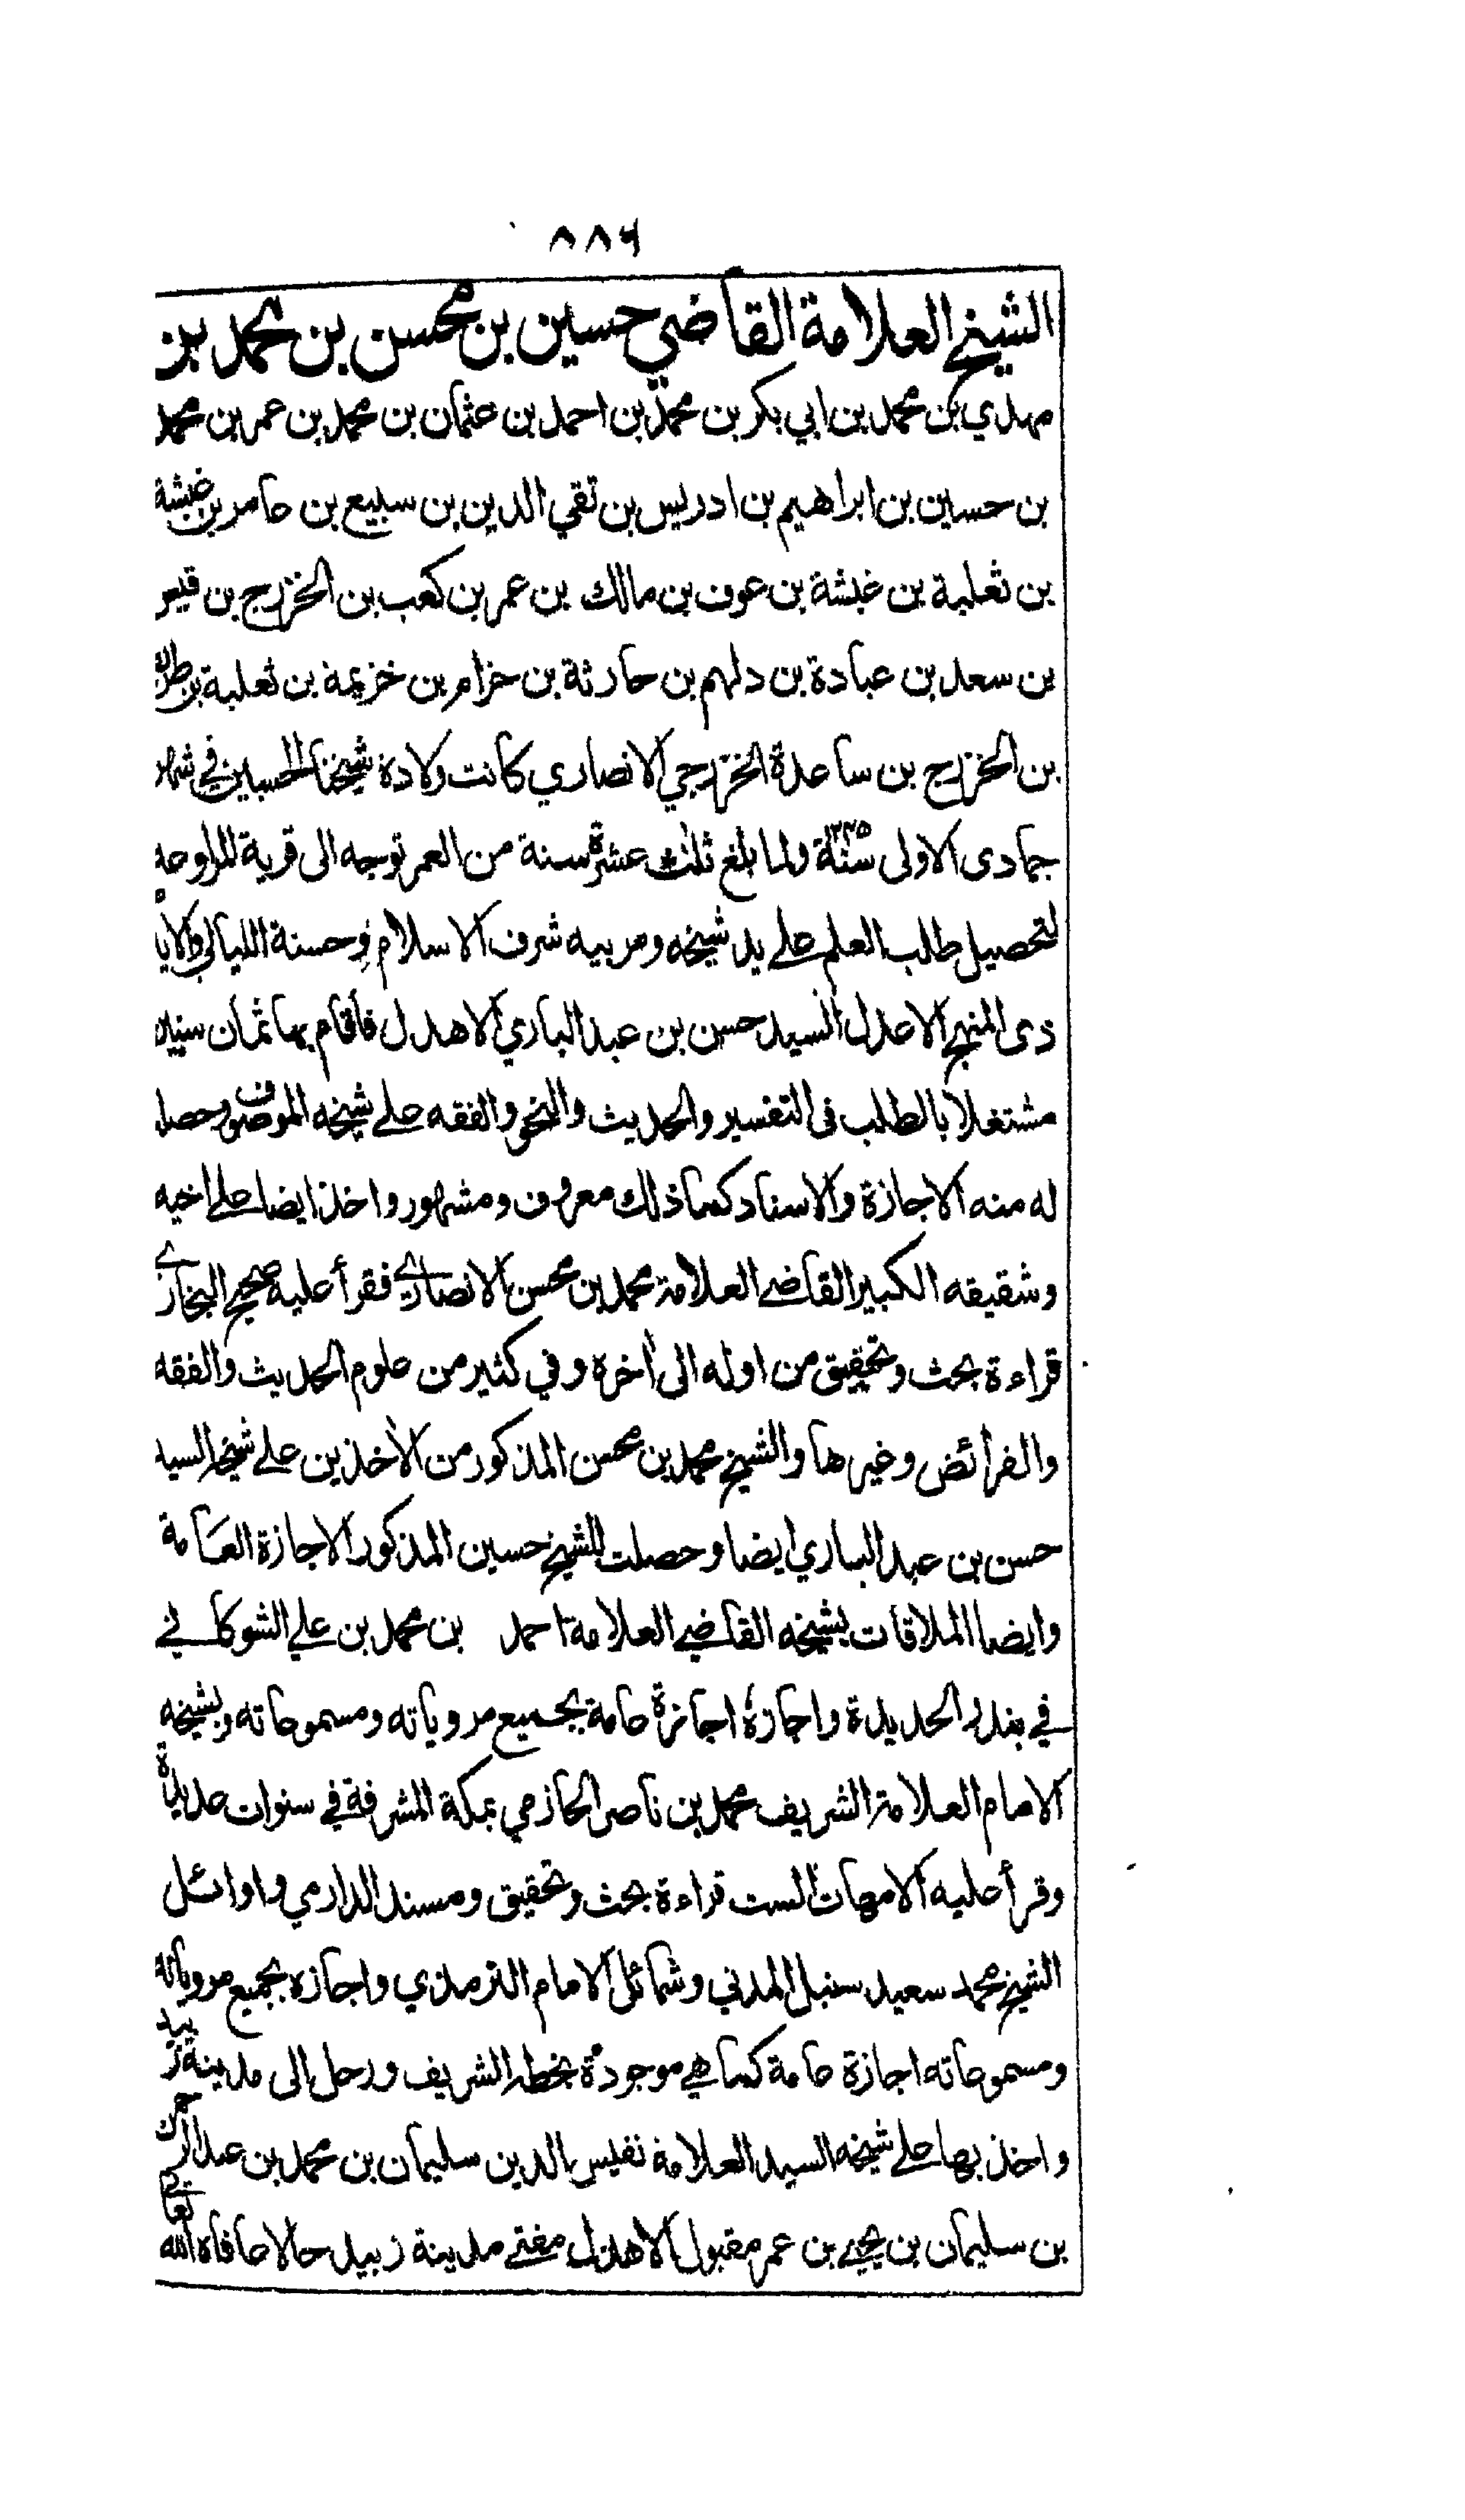 ٨٨٦
الشيخ العلامة القاضي حسين بن محسن بن محمد بن
مهدي بن محمد بن ابي بكر بن محمد بن احمد بن عثمان بن محمد بن عمر بن محمد
بن حسين بن ابراهيم بن ادريس بن تقي الدين بن سبيع بن عامر بن غبشة
بن ثعلبة بن غبشة بن عوف بن مالك بن عمر بن كعب بن الخزرج بن قيس
بن سعد بن عبادة بن دلهم بن حارثة بن خزام بن خزيمة بن ثعلبة بن طريف
بن الخزرج بن ساعدة الخزرجي الانصاري كانت ولادة شيخنا الحسين في شهر
جمادى الاولى سنة ١٢٤٥ ولما بلغ ثلث عشرة سنة من العمر توجه الى قرية المراوعه
لتحصيل طلب العلم على يد شيخه ومربيه شرف الاسلام وحسنة الليالي والايام
ذى المنهج الاعدل السيد حسن بن عبد الباري الاهدل فاقام بها ثمان سنين
مشتغلا بالطلب فى التفسير والحديث والنحو والفقه على شيخه الموصوف وحصل
له منه الاجازة والاسناد كما ذلك معروف ومشهور واخذ ايضا على اخيه
وشقيقه الكبير القاضي العلامة محمد بن محسن الانصاري فقرأ عليه صحيح البخاري
قراءة بحث وتحقيق من اوله الى اٰخره وفي كثير من علوم الحديث والفقه
والفرائض وغيرها والشيخ محمد بن محسن المذكور من الاٰخذين على شيخه السيد
حسن بن عبد الباري ايضا وحصلت للشيخ حسين المذكور الاجازة العامة
وايضا الملاقات بشيخه القاضي العلامة احمد بن محمد بن علي الشوكاني
في بندر الحديدة واجازه اجازة عامة بجميع مروياته ومسموعاته وبشيخه
الامام العلامة الشريف محمد بن ناصر الحازمي بمكة المشرفة في سنوات عديدة
وقرأ عليه الامهات الست قراءة بحث وتحقيق ومسند الدارمي واوائل
الشيخ محمد سعيد سنبل المدني وشمائل الامام الترمذي واجازه بجميع مروياته
ومسموعاته اجازة عامة كما هي موجودة بخطه الشريف ورحل الى مدينة زبيد
واخذ بها على شيخه السيد العلامة نفيس الدين سليمان بن محمد بن عبد الرحمن
بن سليمان بن يحيى بن عمر مقبول الاهدل مفتي مدينة زبيد حالا عافاه الله تعالى